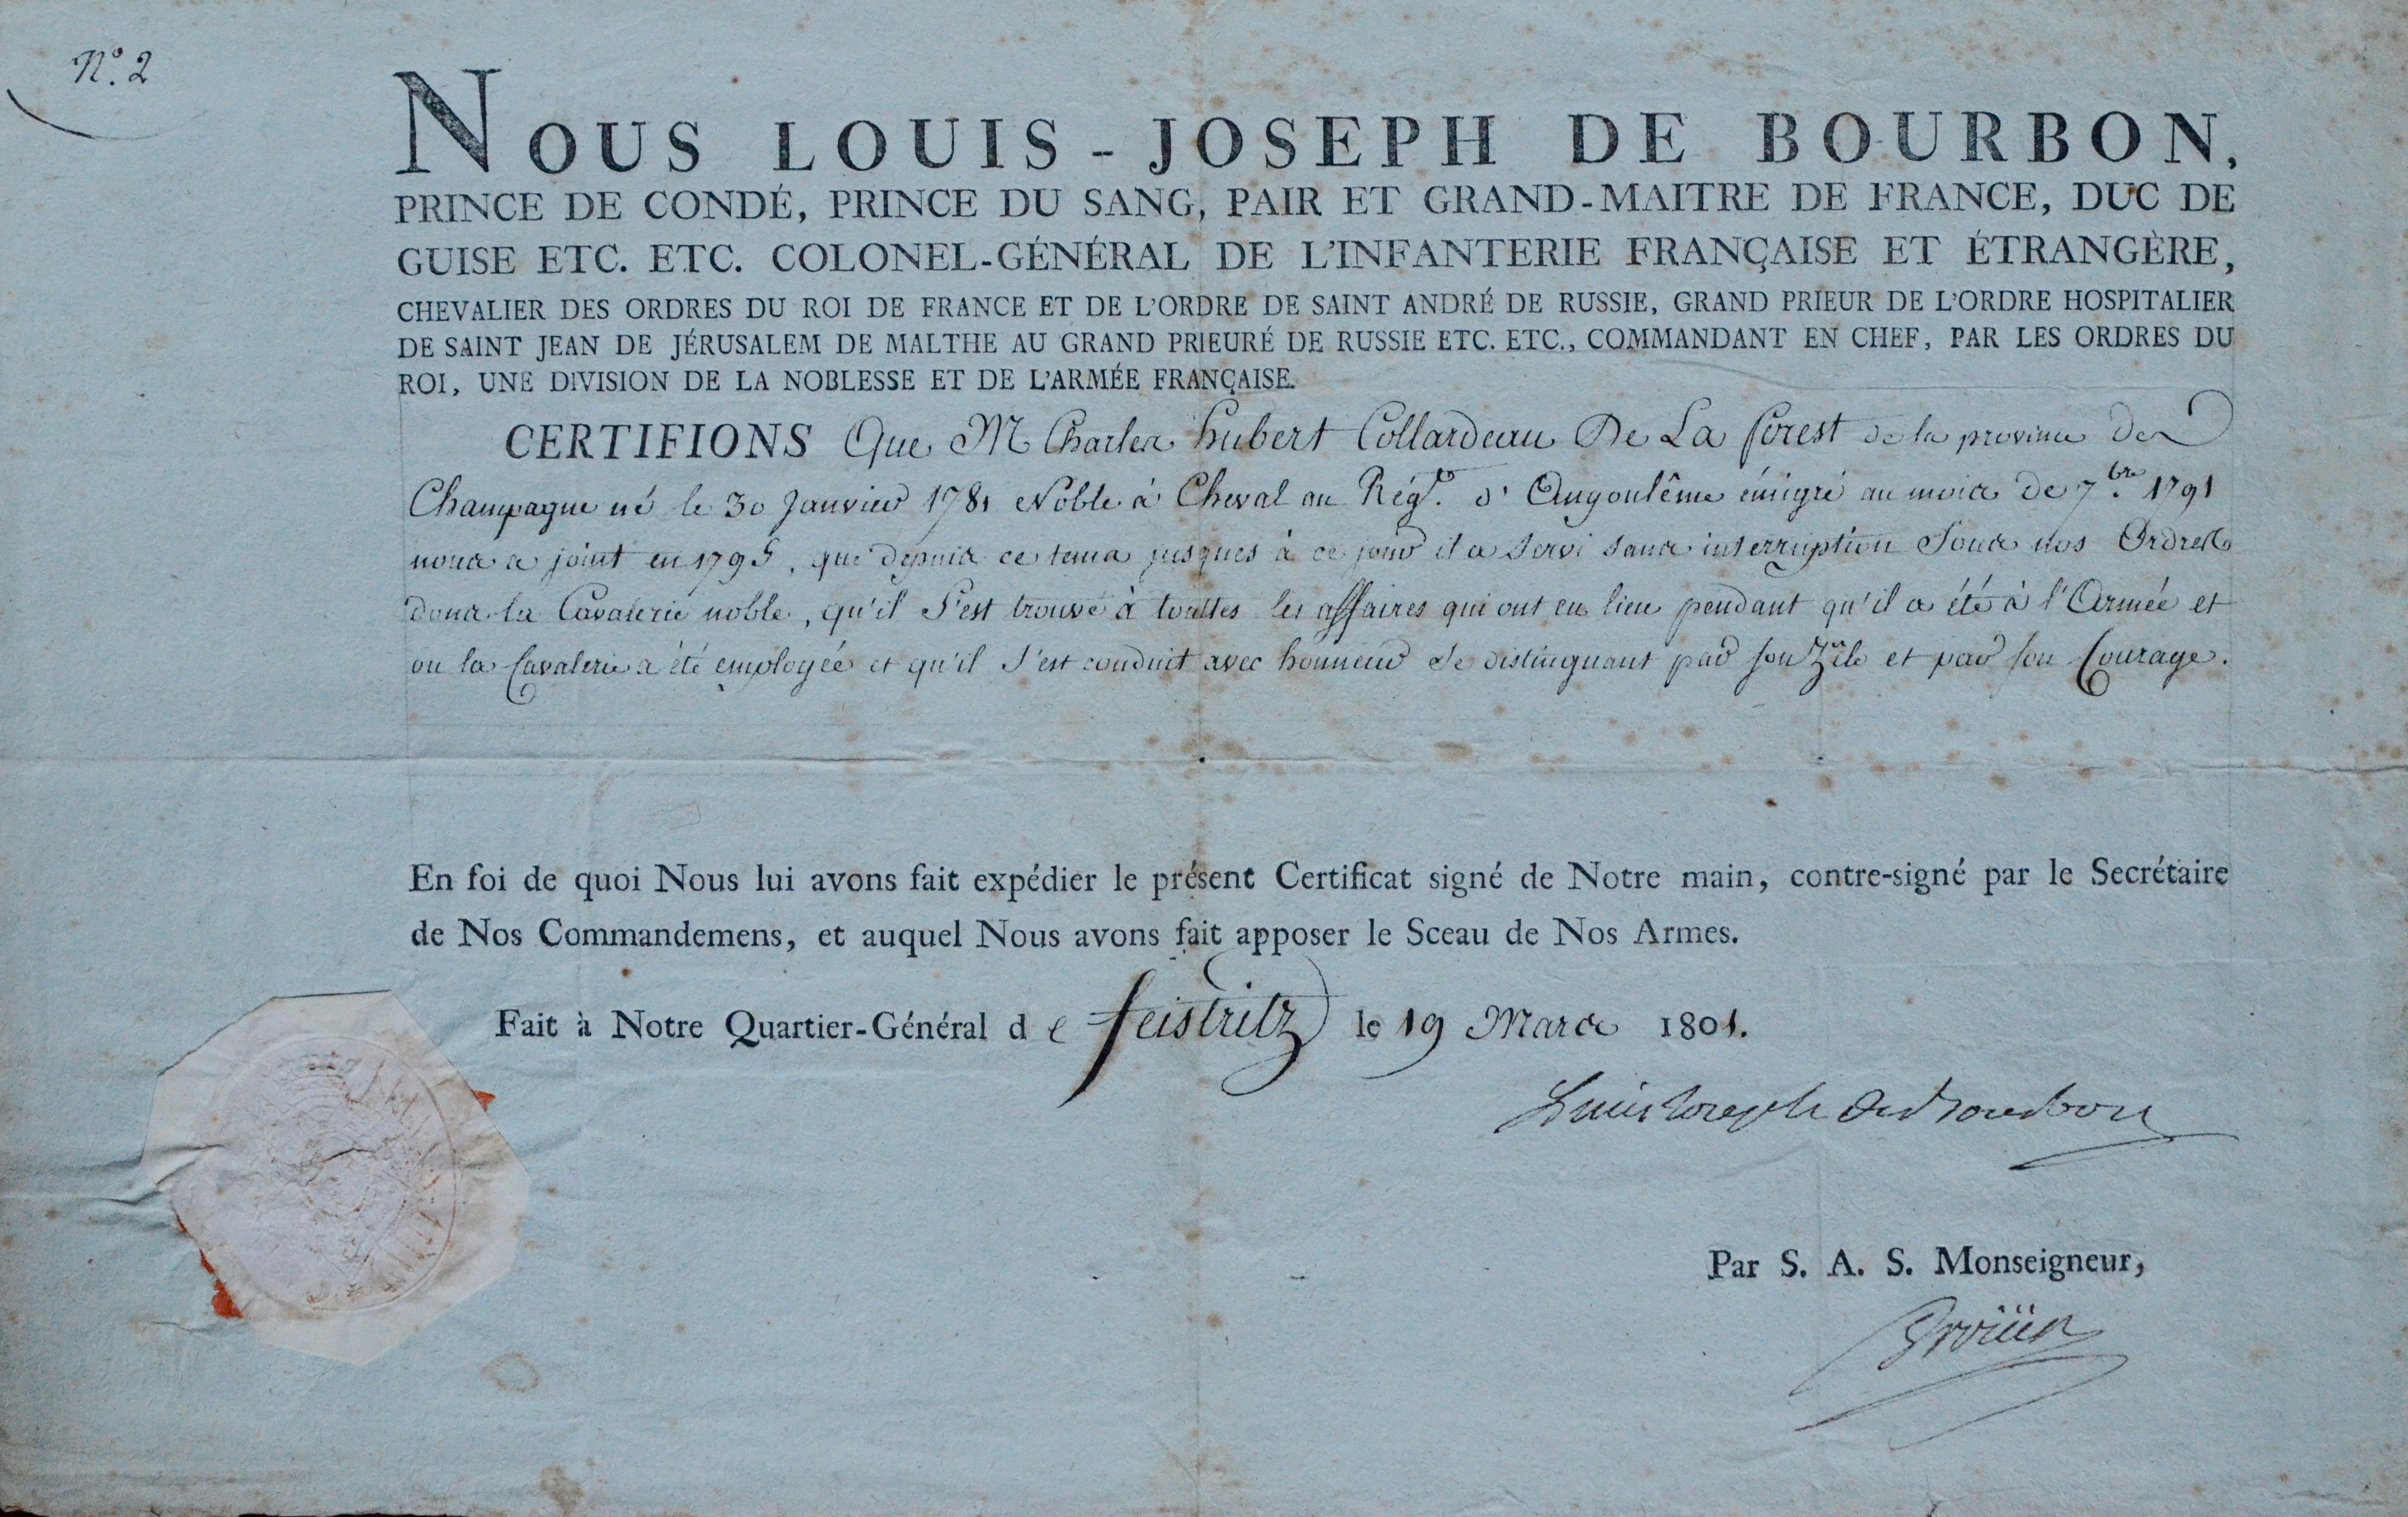 N.º 2
NOUS LOUIS-JOSEPH DE BOURBON,
PRINCE DE CONDÉ, PRINCE DU SANG, PAIR ET GRAND-MAITRE DE FRANCE, DUC DE
GUISE ETC. ETC. COLONEL-GÉNÉRAL DE L'INFANTERIE FRANÇAISE ET ÉTRANGÈRE,
CHEVALIER DES ORDRES DU ROI DE FRANCE ET DE L'ORDRE DE SAINT ANDRÉ DE RUSSIE, GRAND PRIEUR DE L'ORDRE HOSPITALIER
DE SAINT JEAN DE JÉRUSALEM DE MALTHE AU GRAND PRIEURÉ DE RUSSIE ETC. ETC., COMMANDANT EN CHEF, PAR LES ORDRES DU
ROI, UNE DIVISION DE LA NOBLESSE ET DE L'ARMÉE FRANÇAISE.
CERTIFIONS Que M Charles hubert Collardeau De La forest de la province De
Champagne né le 30 Janvier 1781 Noble à Cheval au Régt. d'Angoulême émigré au mois de 7.bre 1791
nous a joint en 1795, que depuis ce tems jusques à ce jour il a servi sans interruption Sous nos Ordres
dans la Cavalerie noble, qu'il S'est trouvé à touttes les affaires qui ont eu lieu pendant qu'il a été à l'Armée et
ou la Cavalerie a été employée et qu'il S'est conduit avec honneur se distinguant par son Zèle et par son Courage.
En foi de quoi Nous lui avons fait expédier le présent Certificat signé de Notre main, contre-signé par le Secrétaire
de Nos Commandemens, et auquel Nous avons fait apposer le Sceau de Nos Armes.
Fait à Notre Quartier-Général de feistritz le 19 Mars 1801.
Louis Joseph de Bourbon
Par S. A. S. Monseigneur,
Droüin